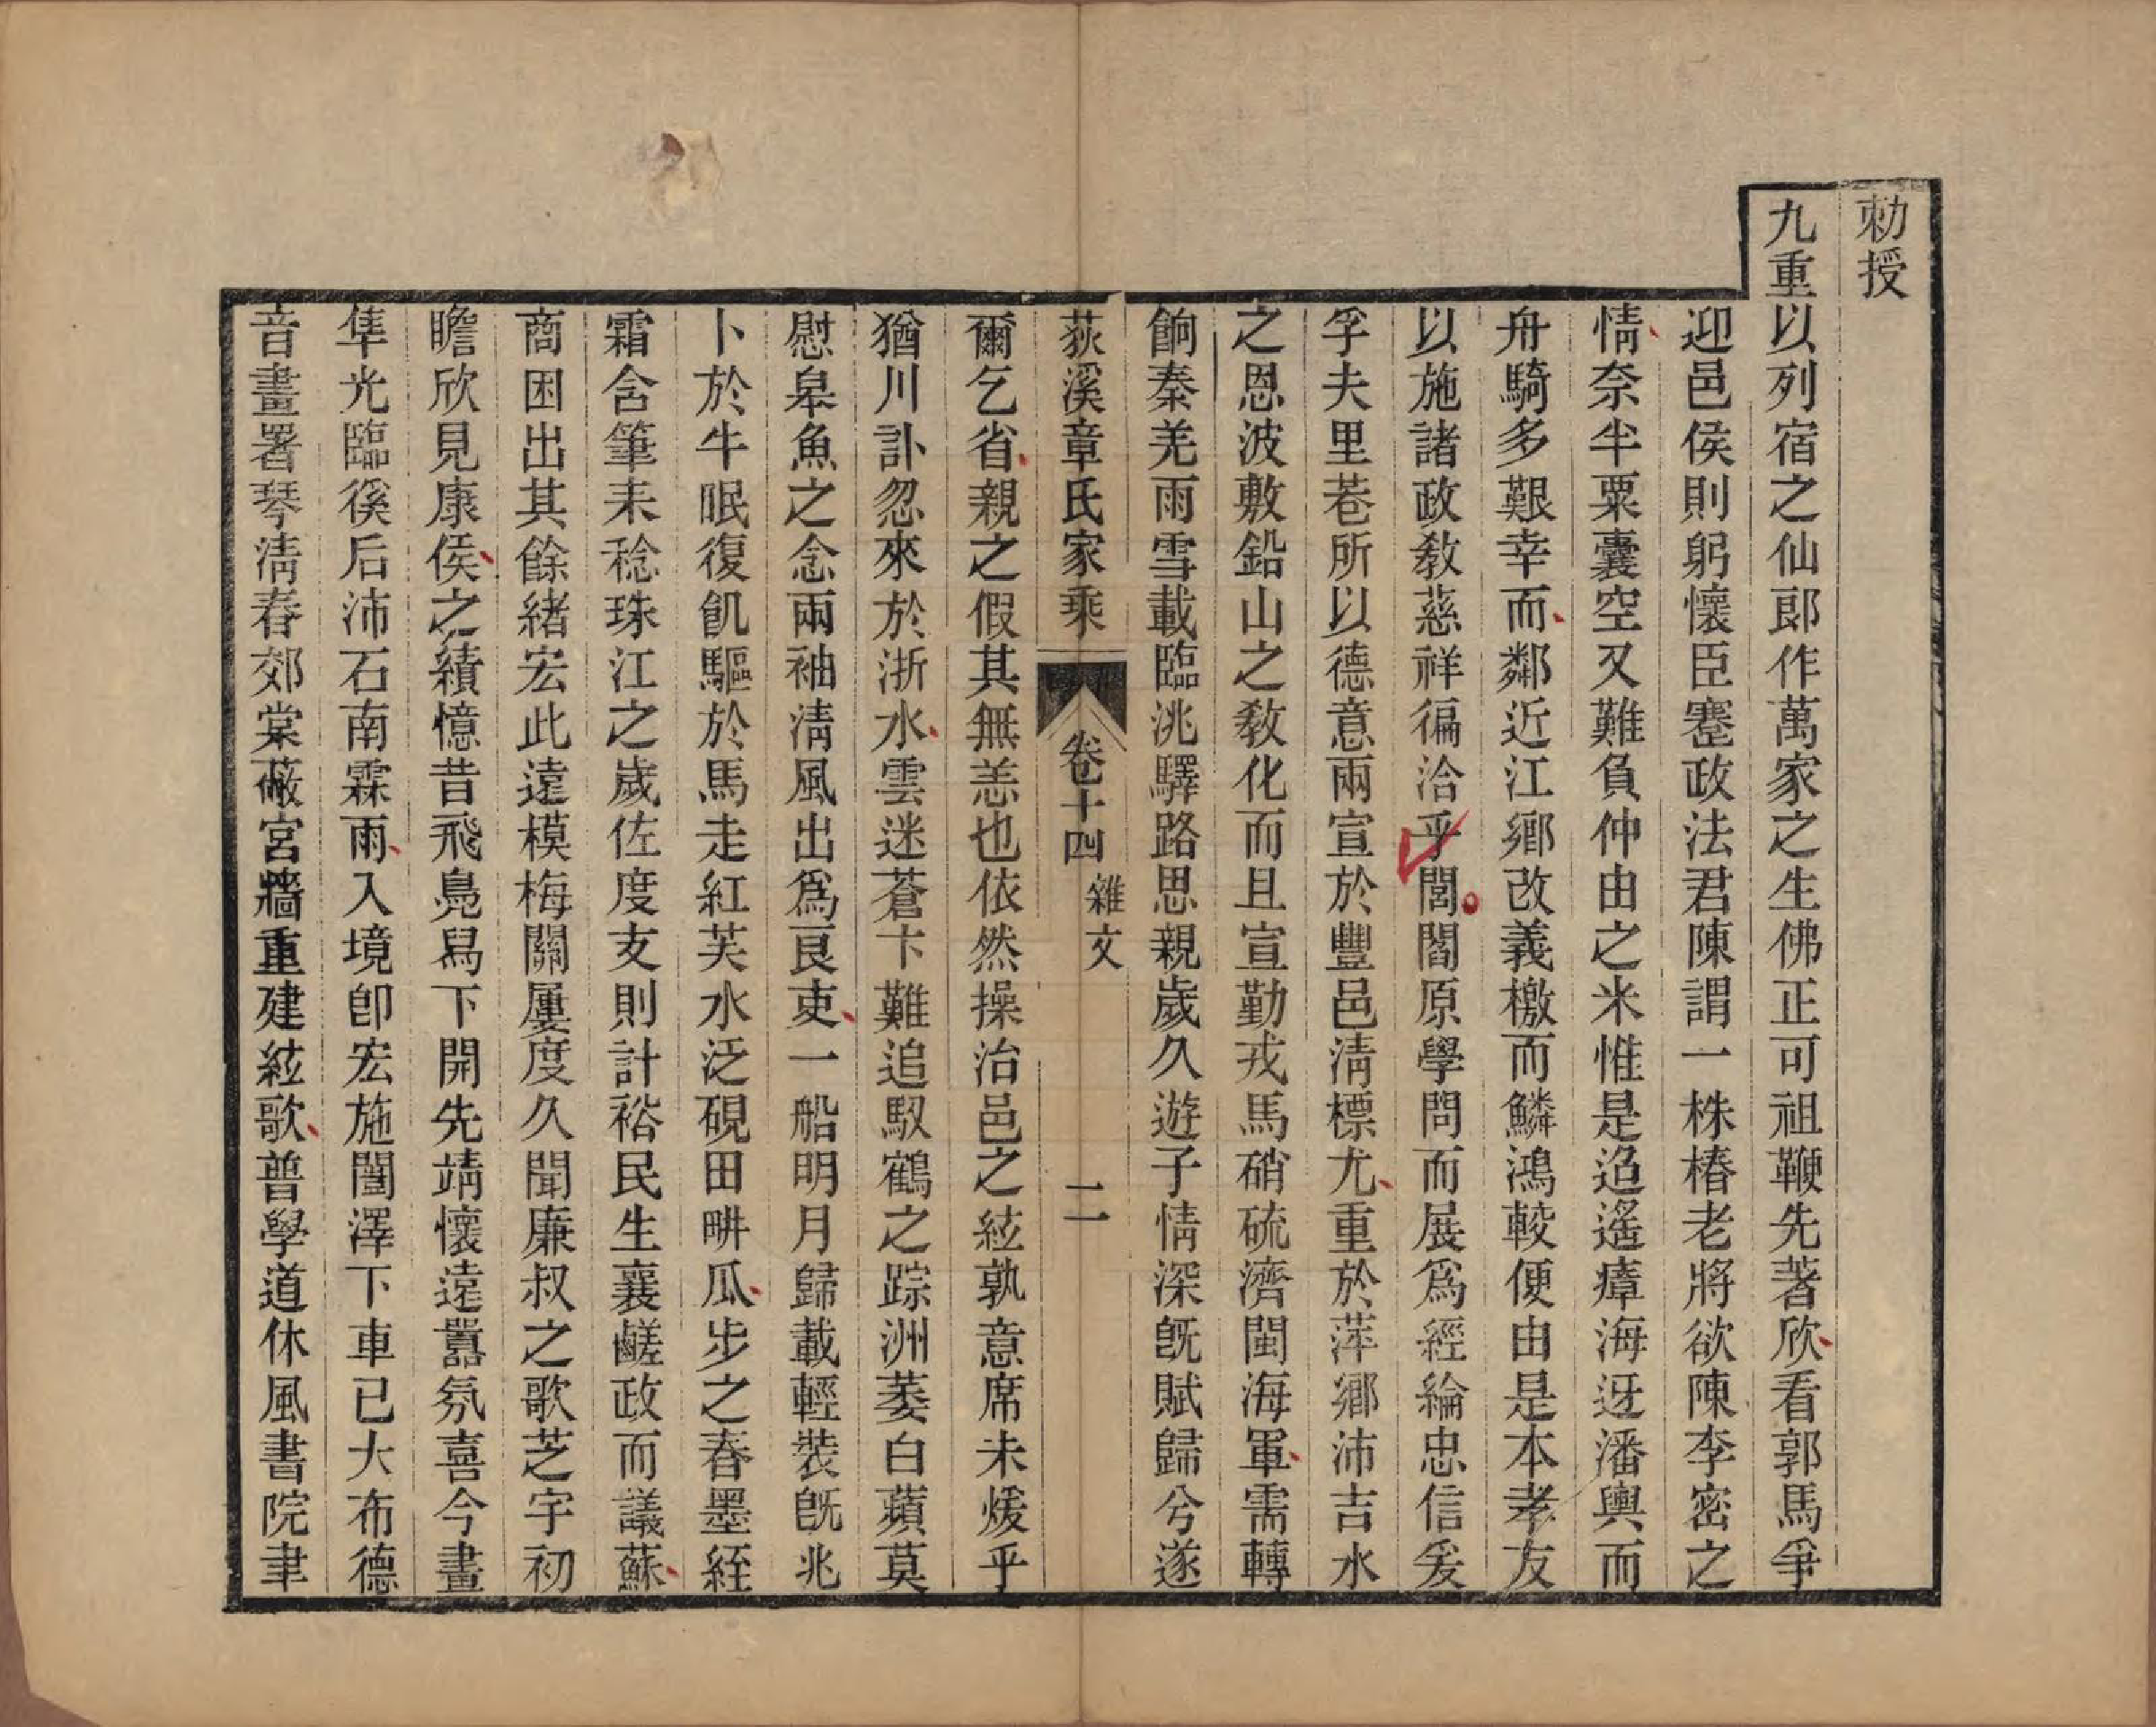 勅授
九重以列宿之仙郎作萬家之生佛正可祖鞭先著欣看郭馬爭
迎邑侯則躬懷臣蹇政法君陳謂一株椿老將欲陳李密之
情奈半粟囊空又難負仲由之米惟是迢遙瘴海迓潘輿而
舟騎多艱幸而鄰近江鄉改義檄而鱗鴻較便由是本孝友
以施諸政教慈祥徧洽乎閭閻原學問而展爲經綸忠信爰
孚夫里巷所以德意兩宣於豐邑淸標尤重於萍鄉沛吉水
之恩波敷鉛山之教化而且宣勤戎馬硝硫濟閩海軍需轉
餉秦羌雨雪載臨洮驛路思親歲久遊子情深旣賦歸兮遂
荻溪章氏家乘 卷十四 雜文 二
爾乞省親之假其無恙也依然操治邑之絃孰意席未煖乎
猶川訃忽來於浙水雲迷蒼卞難追馭鶴之踪洲萎白蘋莫
慰皋魚之念兩袖淸風出爲良吏一船明月歸載輕裝旣兆
卜於牛眠復飢驅於馬走紅芙水泛硯田畊瓜步之春墨絰
霜含筆耒稔珠江之歲佐度支則計裕民生襄鹺政而議蘇
商困出其餘緖宏此遠模梅關屢度久聞廉叔之歌芝宇初
瞻欣見康侯之績憶昔飛鳧舄下開先靖懷遠囂氛喜今畫
隼光臨徯后沛石南霖雨入境卽宏施闓澤下車已大布德
音畫署琴淸春郊棠蔽宮牆重建絃歌普學道休風書院聿